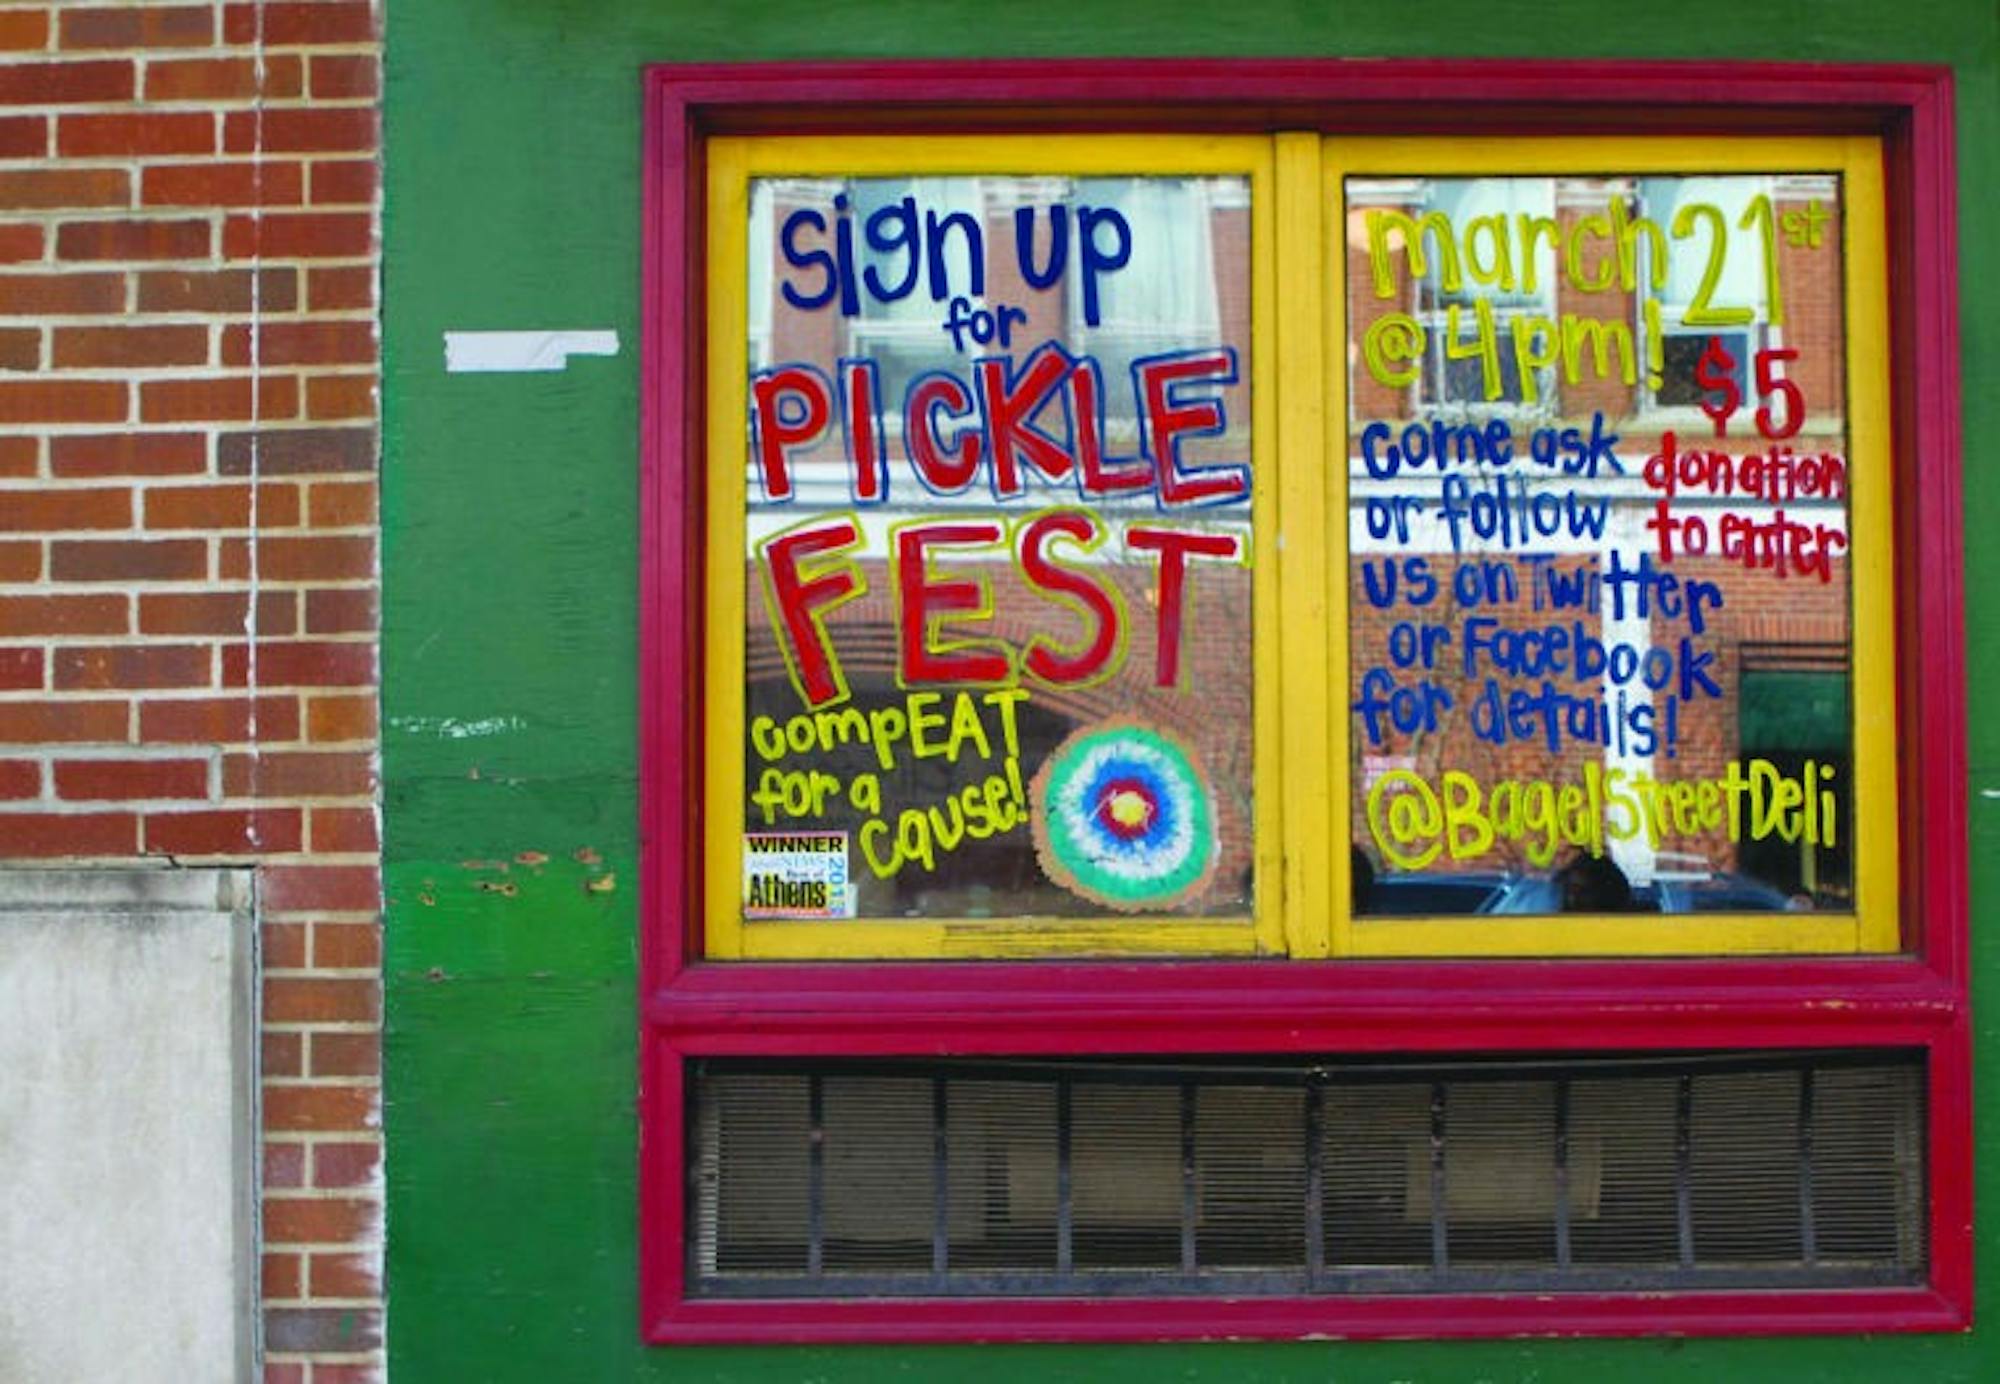 sign up
for
PICKLE
FEST
compEAT
for a
cause!
WINNER
Best of
Athens
march 21st
@ 4pm!
$5
donation
to enter
come ask
or follow
us on Twitter
or Facebook
for details!
@BagelStreetDeli